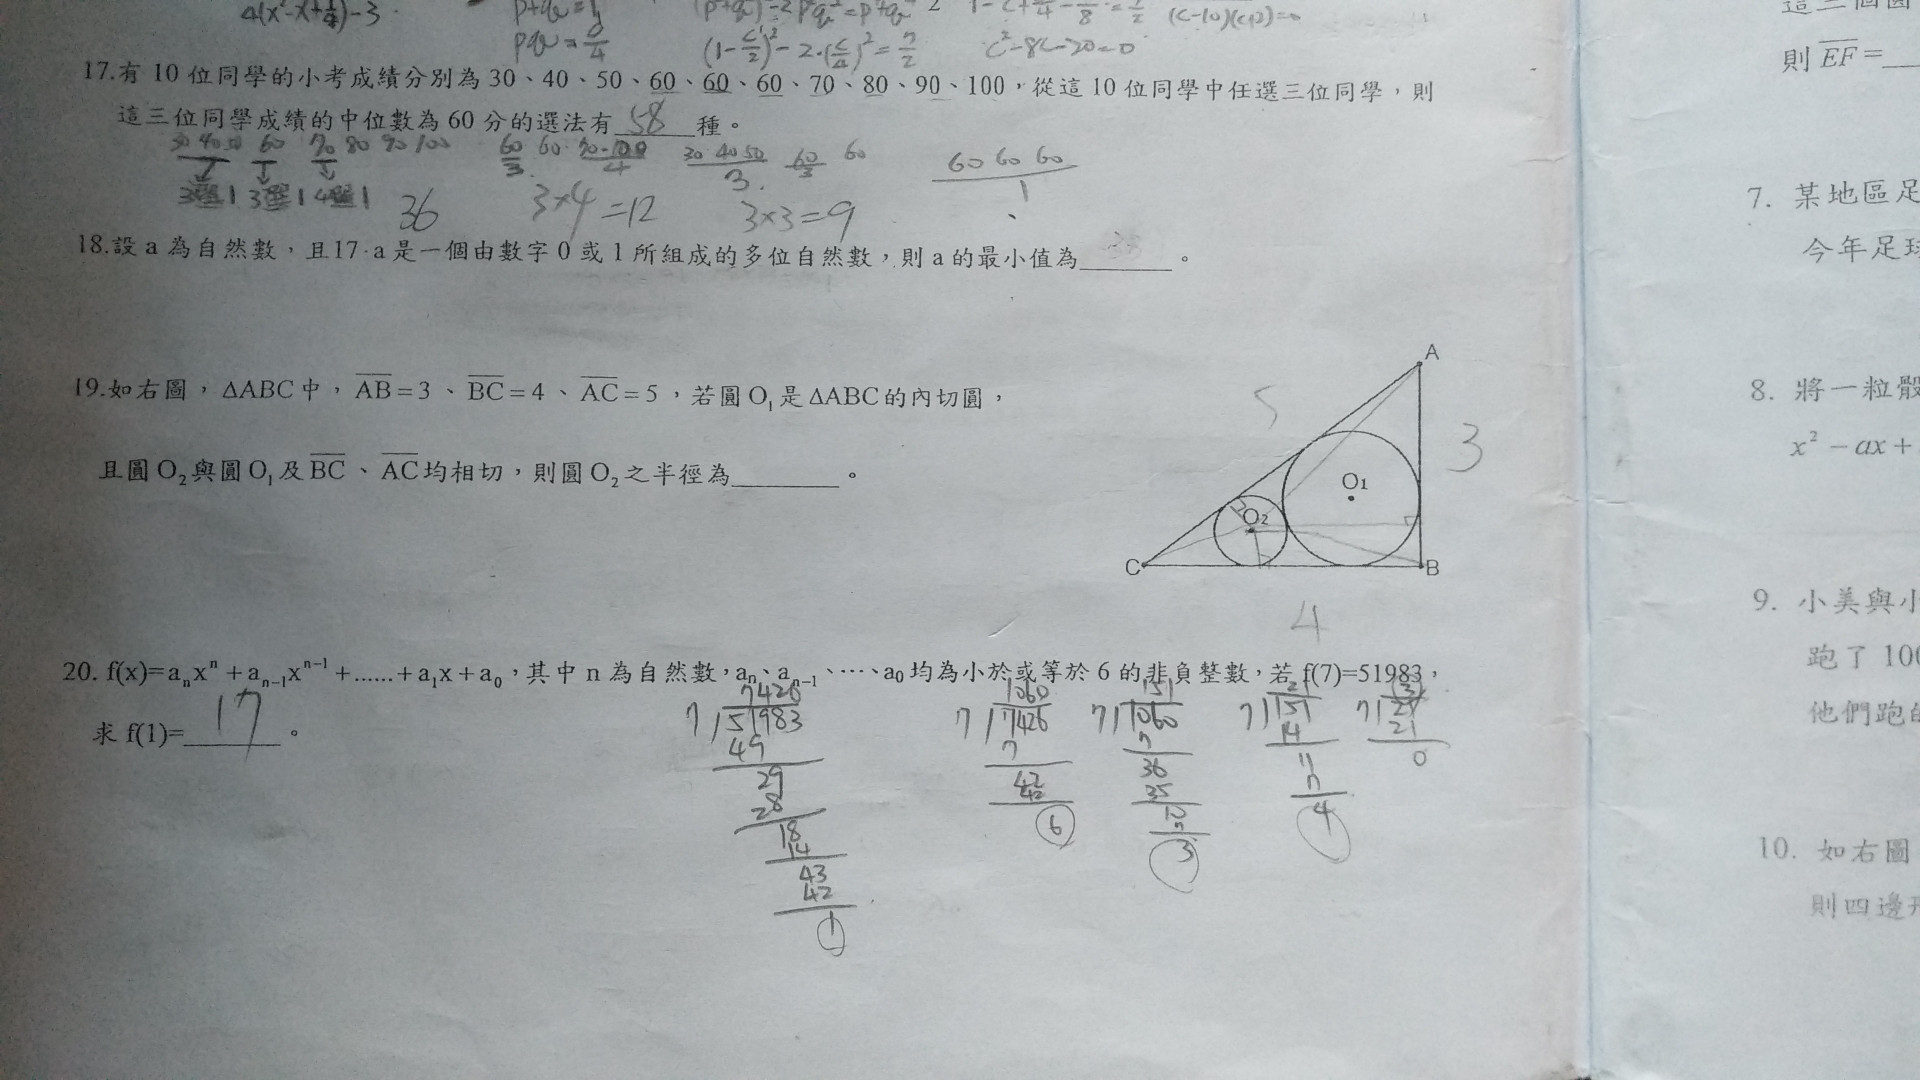 4(x²-x+1/4)-3
17.有 10 位同學的小考成績分別為 30、40、50、60、60、60、70、80、90、100，從這 10 位同學中任選三位同學，則
這三位同學成績的中位數為 60 分的選法有 58 種。
30 40 50 60 70 80 90 100
3選1 3選1 4選1 36
60/3 60 70-100/4
3×4=12
30 40 50/3 60/3 60
3×3=9
60 60 60
1
18.設 a 為自然數，且17·a 是一個由數字 0 或 1 所組成的多位自然數，則 a 的最小值為______。
19.如右圖，ΔABC中，AB=3、BC=4、AC=5，若圓O₁是ΔABC的內切圓，
且圓O₂與圓O₁及BC、AC均相切，則圓O₂之半徑為______。
A
5
3
O₁
O₂
C
B
4
20. f(x)=aₙxⁿ+aₙ₋₁xⁿ⁻¹+......+a₁x+a₀，其中 n 為自然數，aₙ、aₙ₋₁、…、a₀ 均為小於或等於 6 的非負整數，若 f(7)=51983，
求 f(1)= 17 。
7426
7)51983
49
29
28
18
14
43
42
1
1060
7)7426
7
42
42
6
151
7)1060
7
36
35
10
7
3
21
7)151
14
11
7
4
3
7)21
21
0
則 EF=
7. 某地區足
今年足球
8. 將一粒骰
x²-ax+
9. 小美與小
跑了 100
他們跑的
10. 如右圖
則四邊形